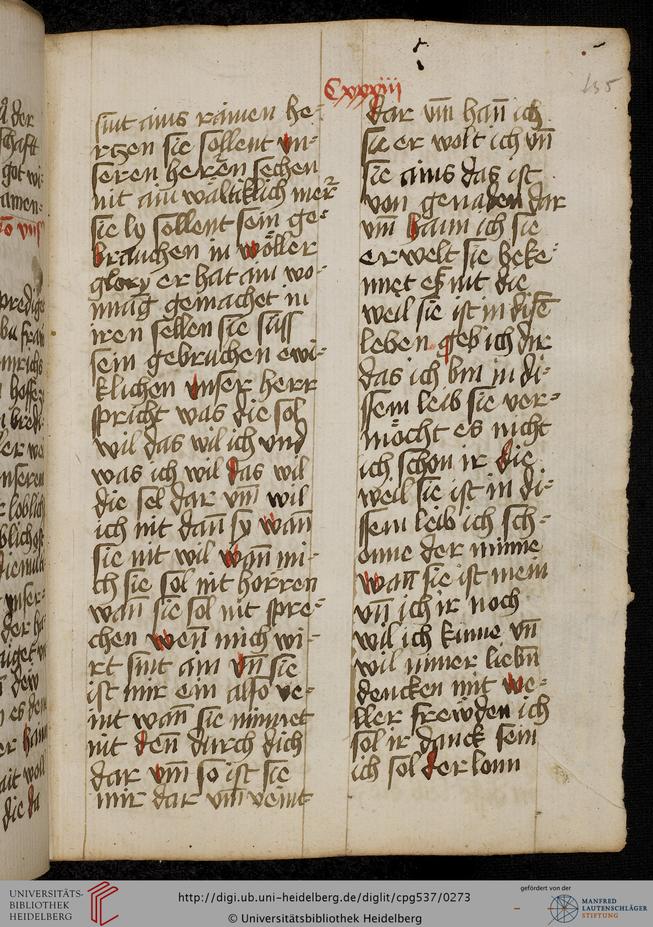 Cxxxiii
135
sint ains rainen he-
rtzen sie sollent vn-
seren heren sechen
nit ain waltiklich mer
sie ly sollent sein ge-
brauchen in wöller
glory er hat ain wo-
nung gemachet in
iren sellen sie süss
sein gebruchen ewi-
klichen vnser herr
spricht was die sol
wil das wil ich vnd
was ich wil das wil
die sel dar vm̄ wil
ich nit dan̄ sy wan̄
sie nit wil wan̄ mi-
ch sie sol nit horren
wan̄ sie sol nit spre-
chen wen̄ mich wi-
rt sint ain vn̄ sie
ist mir ein also ve-
int wan̄ sie nimnet
nit den̄ durch dich
dar vm̄ so ist sie
mir dar vm̄ veint
dar vm̄ han̄ ich
sie er welt ich vn̄
sie ains das ist
von genaden dar
vm̄ haim ich sie
er welt sie beke-
nnet es nit die
weil sie ist in dise
leben geb ich dir
das ich bin in di-
ssem leib sie ver-
möcht es nicht
ich schon ir die
weil sie ist in di-
ssem leib ich sch-
onne der minne
wan̄ sie ist mein
vn̄ ich ir noch
wil ich kinne vn̄
wil immer liebn̄
dencken mit we-
ller frewden ich
sol ir danck sein
ich sol der lonn
UNIVERSITÄTS-
BIBLIOTHEK
HEIDELBERG
http://digi.ub.uni-heidelberg.de/diglit/cpg537/0273
© Universitätsbibliothek Heidelberg
gefördert von der
MANFRED
LAUTENSCHLÄGER
STIFTUNG